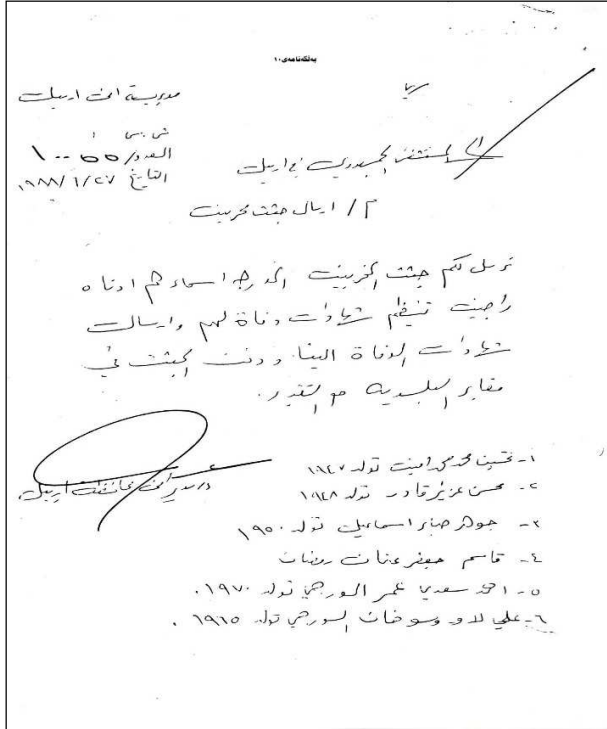 بەڵگەنامەی ١٠
سري
مديرية امن اربيل
ش.س
العدد/ ١٠٠٥٥
التاريخ ١٩٨٨/١/٢٧
الى/ المستشفى الجمهوري في اربيل
م/ ارسال جثث مخربين
نرسل لكم جثث المخربين المدرجه اسماءهم ادناه
راجين تنظيم شهادات وفاة لهم وارسال
شهادات الوفاة الينا ودفن الجثث في
مقابر البلدية مع التقدير.
مدير امن محافظة اربيل
١- تحسين محمد محمد امين تولد ١٩٤٧
٢- محسن عزيز قادر تولد ١٩٤٨
٣- جوهر صابر اسماعيل تولد ١٩٥٠
٤- قاسم جعفر عثمان رمضان
٥- احمد سعدي عمر السورجي تولد ١٩٧٠.
٦- علي لاو وسو خان السورجي تولد ١٩٦٥.